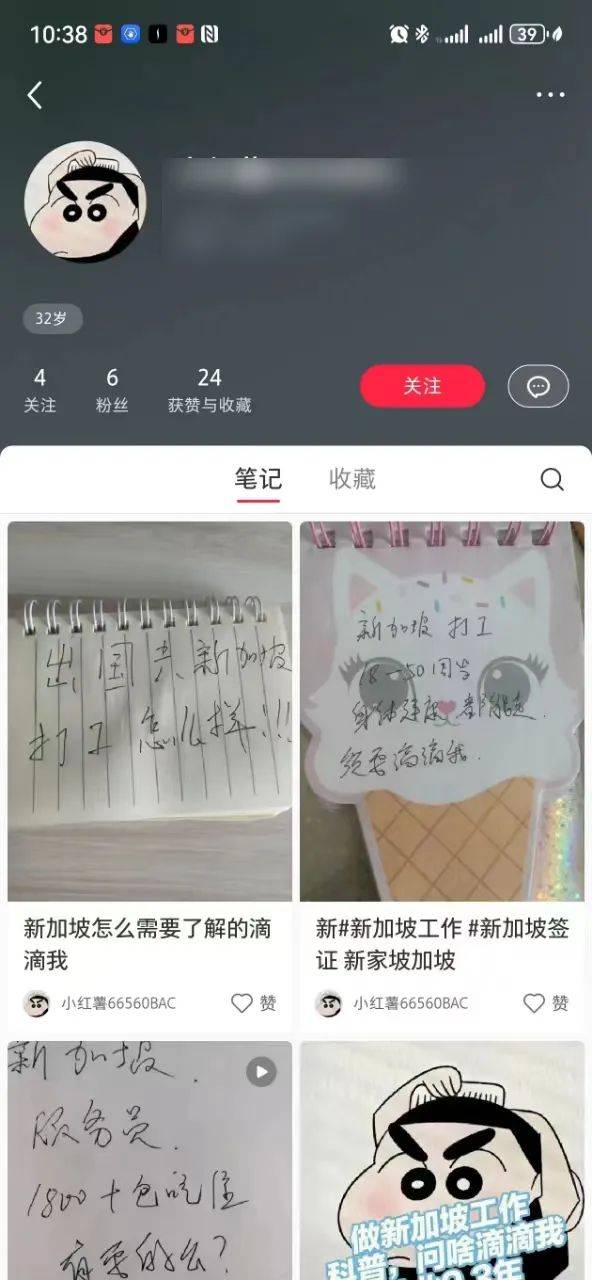 10:38
39
32岁
4
6
24
关注
粉丝
获赞与收藏
关注
笔记
收藏
出国去新加坡
打工怎么样!!!
新加坡怎么需要了解的滴
滴我
小红薯66560BAC
赞
新加坡 打工
18-50周岁
身体健康都能走
须要滴滴我.
新#新加坡工作 #新加坡签
证 新家坡加坡
小红薯66560BAC
赞
新加坡.
服务员.
1800+包吃住
有要的么?
做新加坡工作
科普,问啥滴滴我